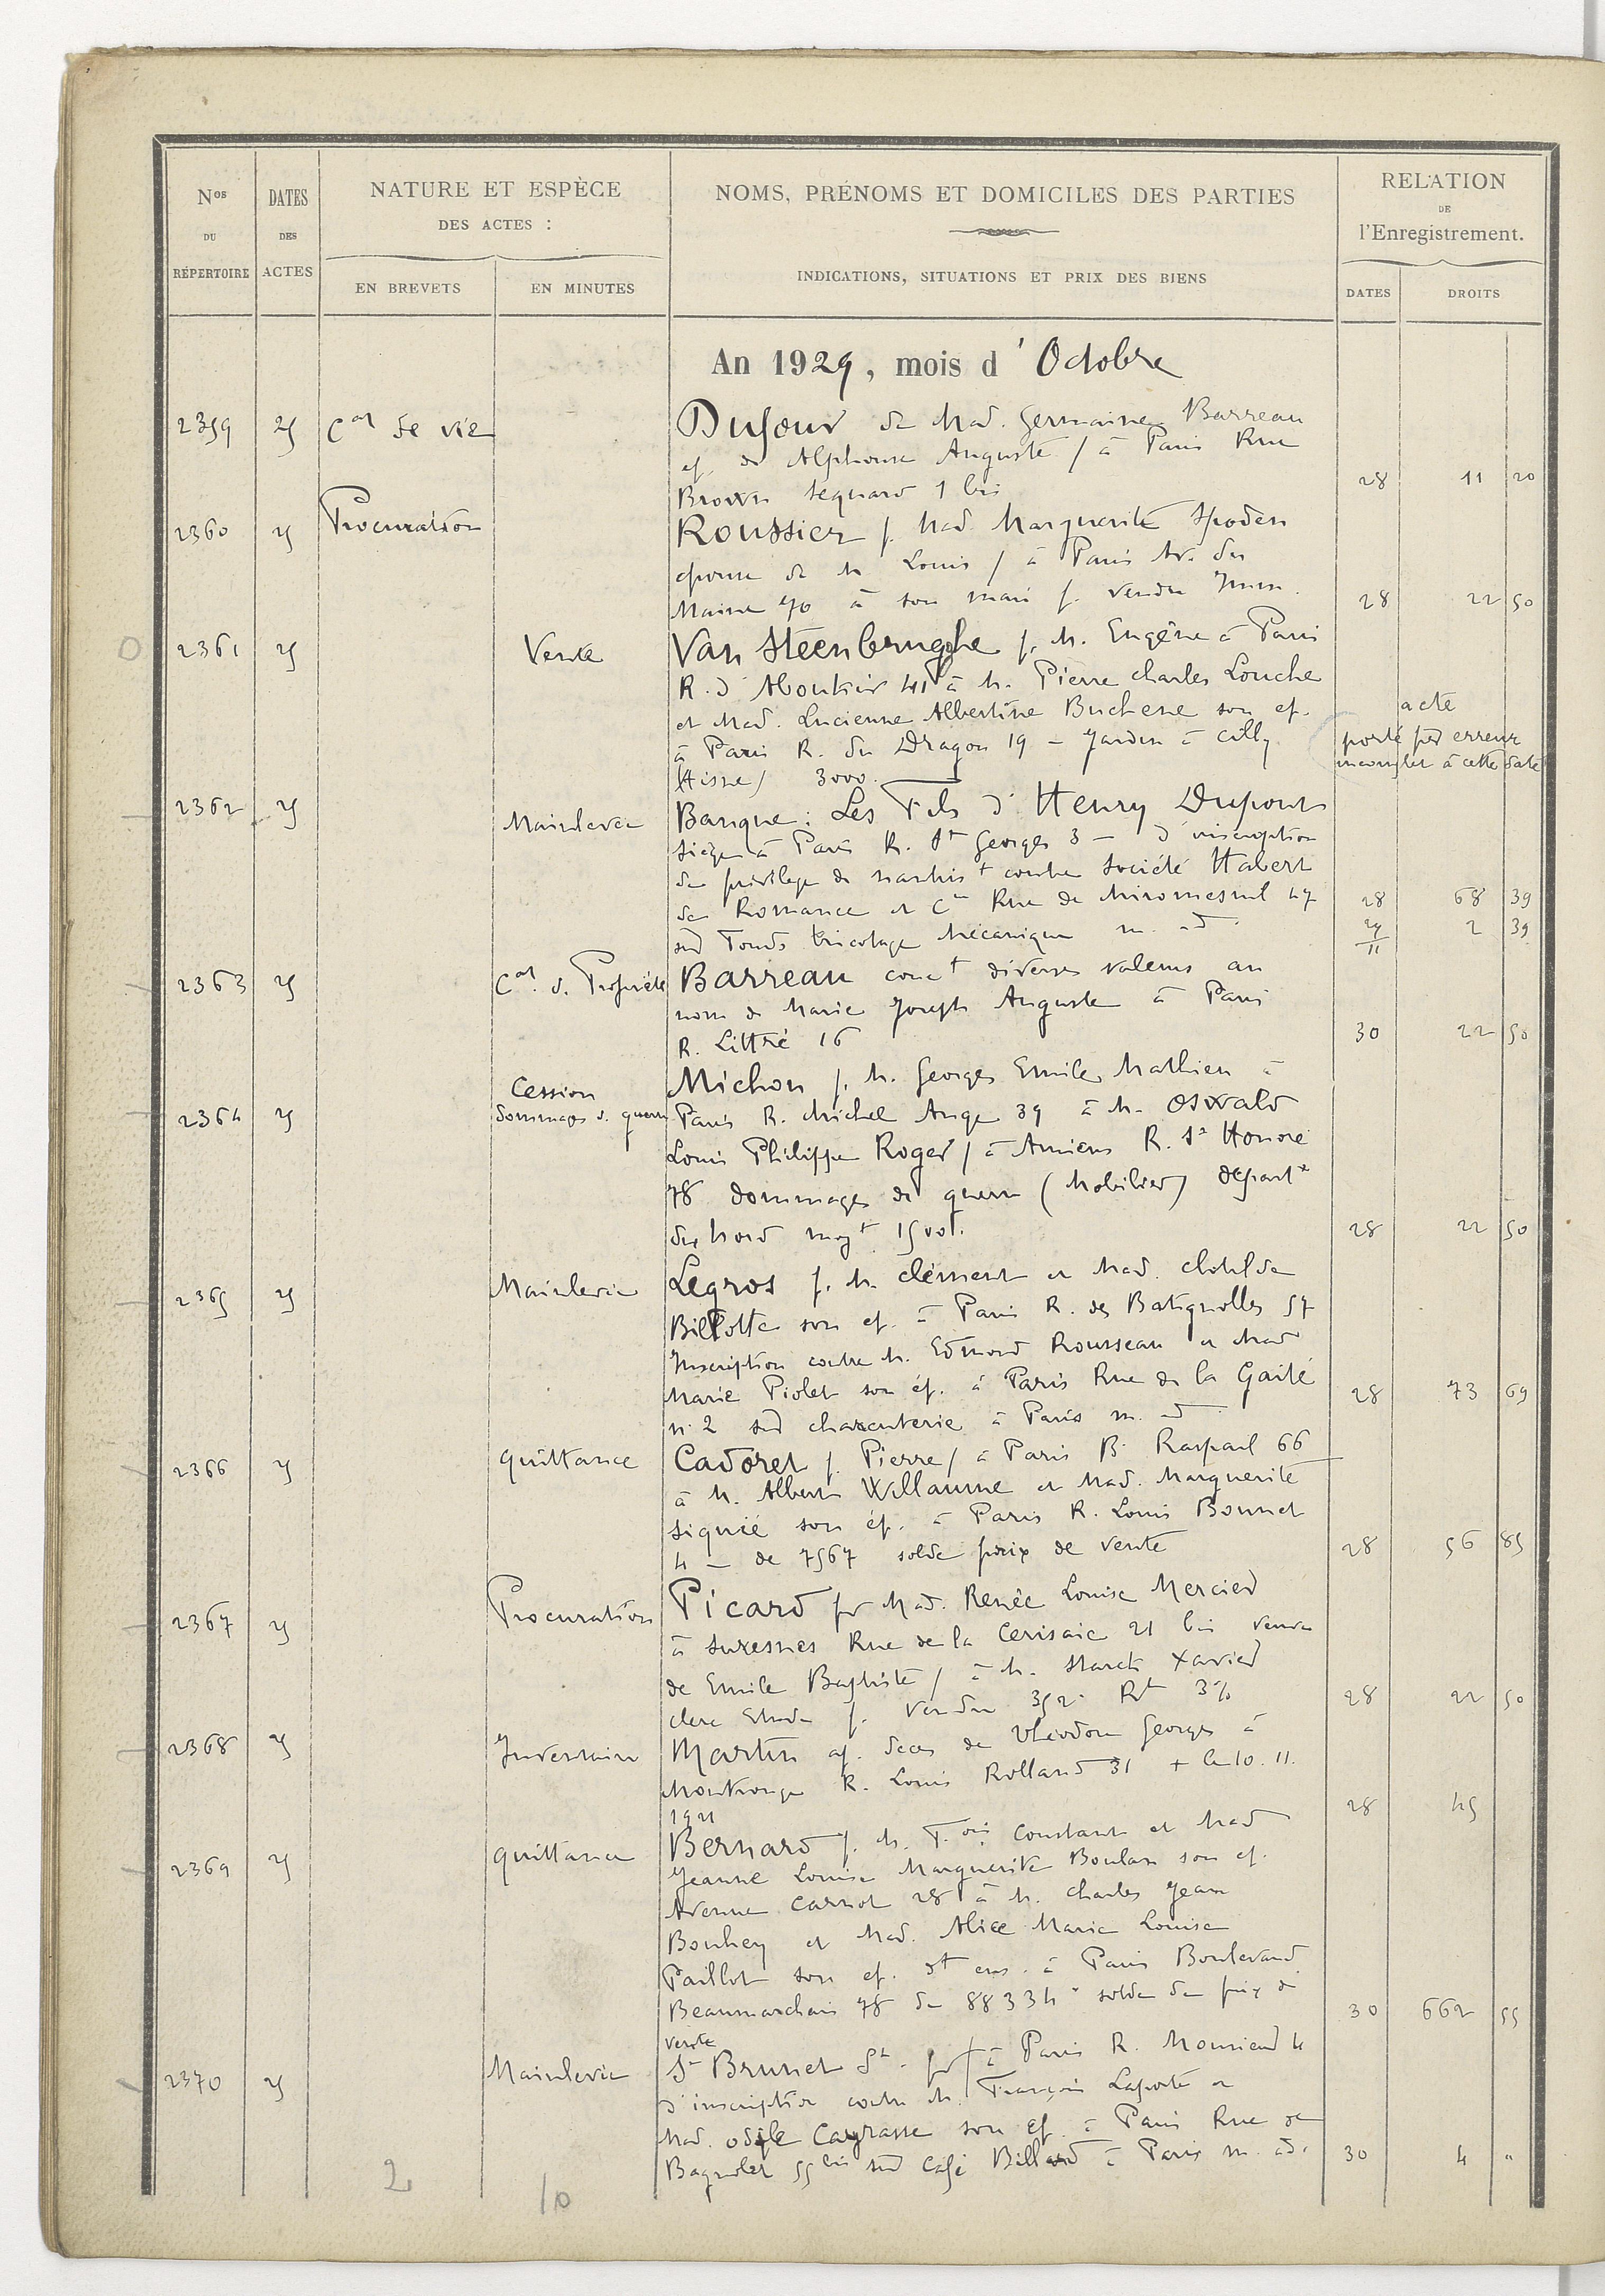 Nos DU RÉPERTOIRE
DATES DES ACTES
NATURE ET ESPÈCE DES ACTES :
EN BREVETS
EN MINUTES
NOMS, PRÉNOMS ET DOMICILES DES PARTIES
INDICATIONS, SITUATIONS ET PRIX DES BIENS
RELATION DE l'Enregistrement.
DATES
DROITS
An 1929, mois d'Octobre
2359 25 Cat de vie
Dufour de Mad. Germaine Barreau
ep. de Alphonse Auguste / à Paris Rue
Brown Sequard 1 bis 28 11 20
2360 25 Procuration
Roussier p. Mad. Marguerite
épouse de M. Louis / à Paris Av. du
Maine 70 à son mari p. vendre Imm. 28 22 50
2361 25 Vente
Van Steenbrugghe p. M. Eugène à Paris
R. d'Aboukir 41 à M. Pierre Charles Louche
et Mad. Lucienne Albertine Buchene son ep.
à Paris R. du Dragon 19 - Jardin à Cilly
(Aisne) 3000.
acte
porté par erreur
incomplet à cette date
2362 25 Mainlevée
Banque : Les Fils d'Henry Dupont
Siège à Paris R. St Georges 3 - d'inscription
de privilège de nantist contre Société Habert
de Romance et Cie Rue de Miromesnil 47 28 68 39
sur Fonds tricotage Mécanique m. ad 29/11 2 39
2363 25 Cat. d. Propriété
Barreau conct diverses valeurs au
nom de Marie Joseph Auguste à Paris
R. Littré 16 30 22 50
2364 25 Cession
Dommages d. guerre
Michon p. M. Georges Emile Mathieu à
Paris R. Michel Ange 39 à M. Oswald
Louis Philippe Roger / à Amiens R. St Honoré
78 dommages de guerre (Mobilier) départt
du Nord moyt 1500f. 28 22 50
2365 25 Mainlevée
Legros p. M. Clément et Mad. Clotilde
Billotte son ep. à Paris R. des Batignolles 57
Inscription contre M. Edmond Rousseau et Mad
Marie Piolet son ép. à Paris Rue de la Gaité 28 73 69
n. 2 sur charcuterie à Paris m. ad
2366 25 Quittance
Cadoret p. Pierre / à Paris B. Raspail 66
à M. Albert Willaume et Mad. Marguerite
Siquié son ép. à Paris R. Louis Bonnet
4 - de 7567 solde prix de vente 28 56 85
2367 25 Procuration
Picard pr Mad. Renée Louise Mercier
à Suresnes Rue de la Cerisaie 21 bis veuve
de Emile Baptiste / à M. Starck Xavier
clerc Etude p. Vendre 352f Rt 3% 28 22 50
2368 25 Inventaire
Martin ap. deces de Théodore Georges à
Montrouge R. Louis Rolland 31 + le 10.11.
1921 28 45
2369 25 Quittance
Bernard p. M. Fois Constant et Mad
Jeanne Louise Marguerite Boulan son ep.
Avenue Carnot 28 à M. Charles Jean
Bouhey et Mad. Alice Marie Louise
Paillot son ep. dt ens. à Paris Boulevard
Beaumarchais 78 de 88334f solde de prix de 30 662 55
vente
2370 25 Mainlevée
St Brunet St. pr / à Paris R. Monsieur 4
d'inscription contre M. François Laporte et
Mad. Odile Cayrasse son ep. à Paris Rue de
Bagnolet 55 bis sur Café Billard à Paris m. ad. 30 4 "
2 10